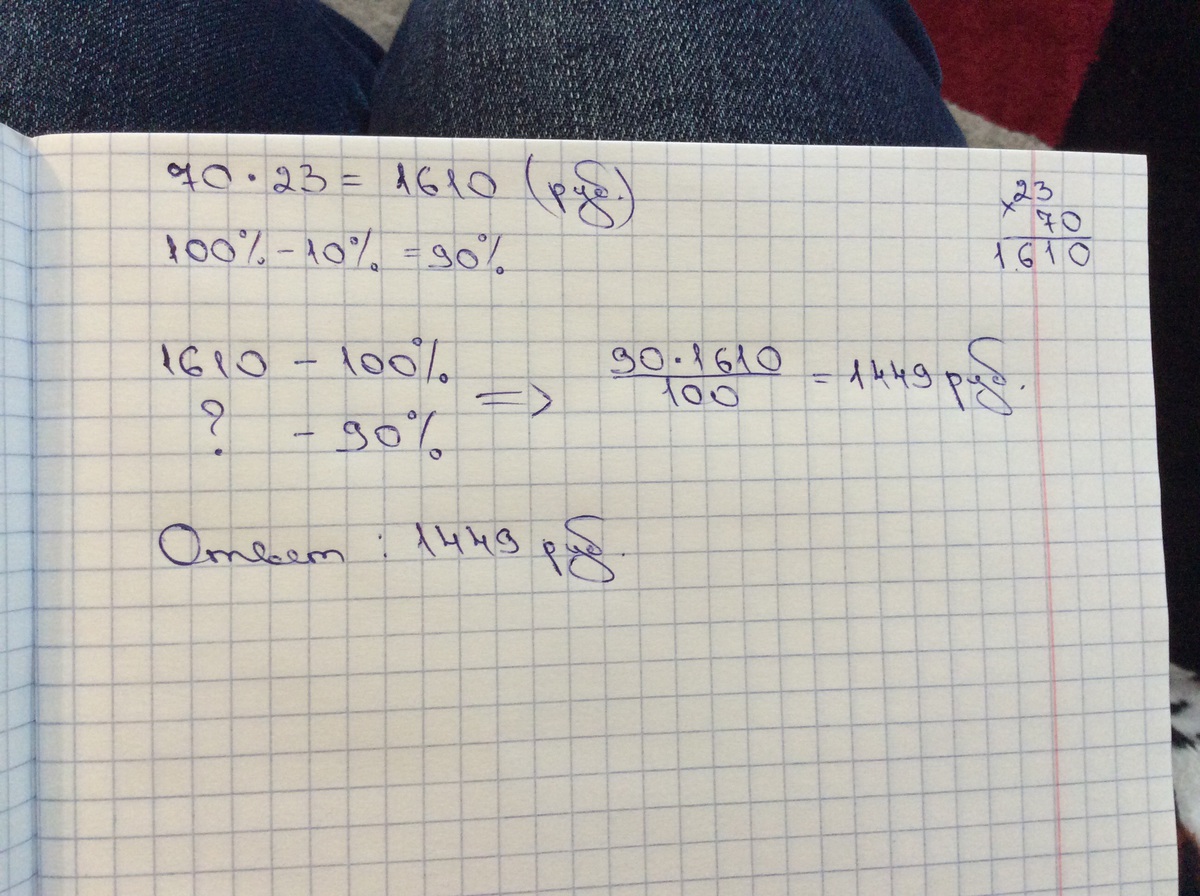 70·23= 1610 (руб.)
100%-10% =90%
×23
70
1610
1610 - 100%
? - 90%
=> 90·1610
100
= 1449 руб.
Ответ : 1449 руб.